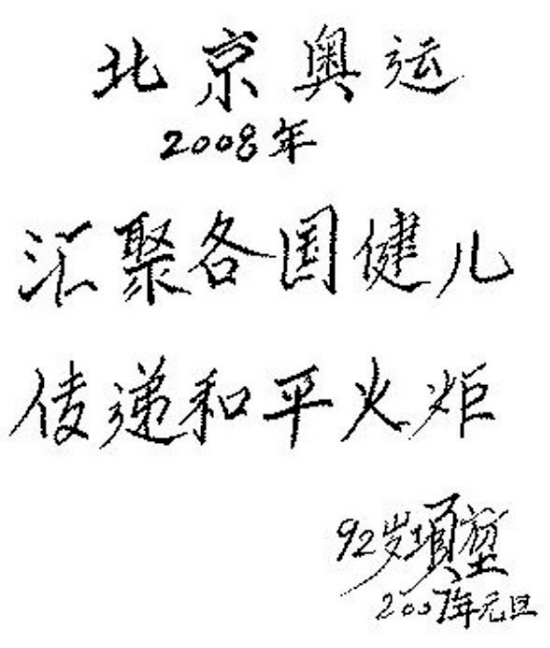 北京奥运
2008年
汇聚各国健儿
传递和平火炬
92岁项堃
2007年元旦